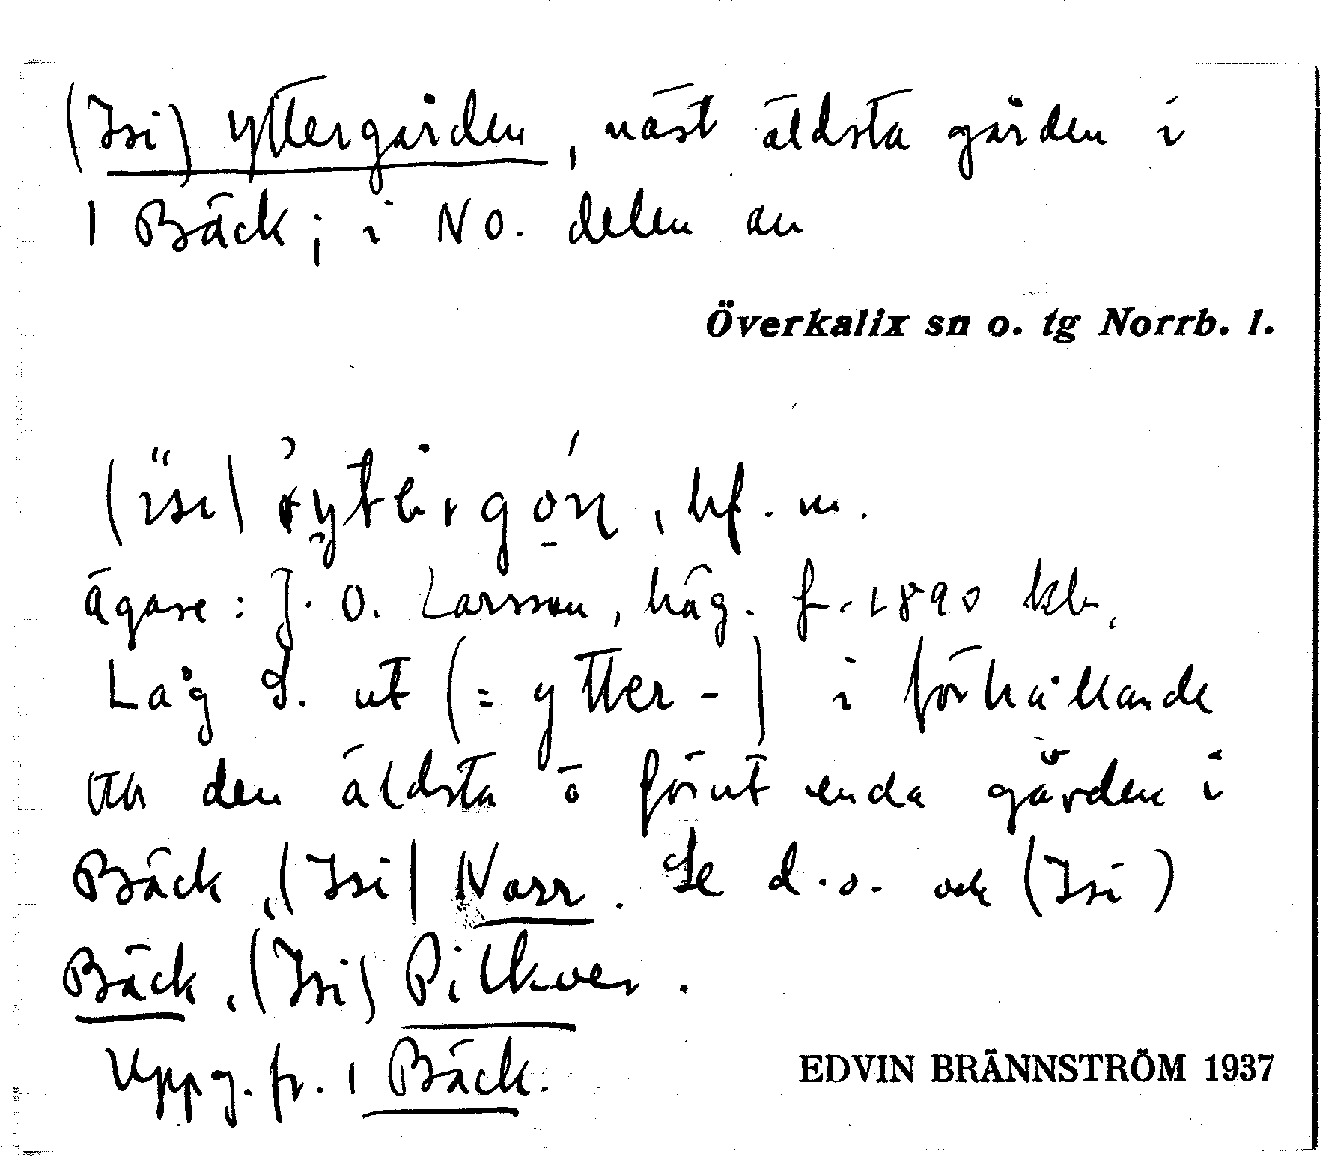 (Isi) Yttergården, näst äldsta gården i
1 Bäck; i NO. delen av
Överkalix sn o. tg Norrb. l.
(ısı) , bf. m.
Ägare: J. O. Larsson, häg. f. 1890 kb.
Låg S. ut (= ytter-) i förhållande
till den äldsta o förut enda gården i
Bäck, (Isi) Norr. Se d. o. och (Isi)
Bäck, (Isi)
Uppg. fr. 1 Bäck.
EDVIN BRÄNNSTRÖM 1937